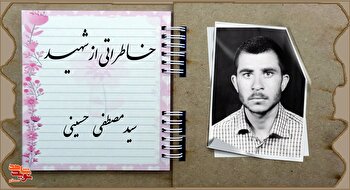 خاطراتی از شهید
سید مصطفی حسینی